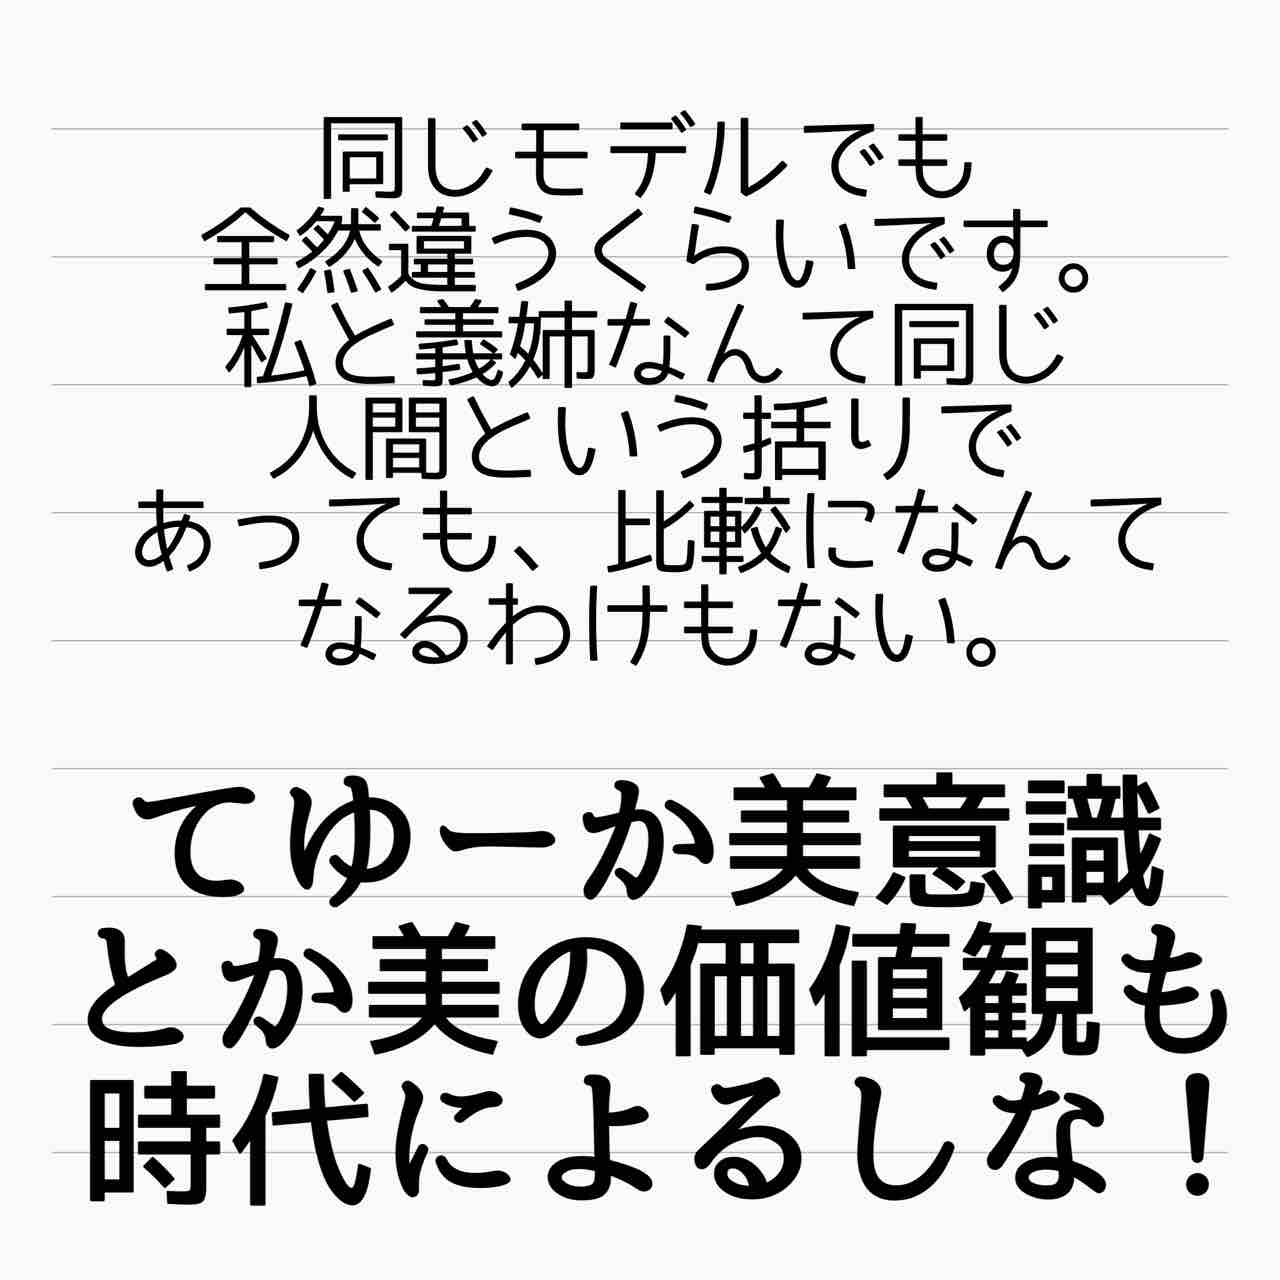 同じモデルでも
全然違うくらいです。
私と義姉なんて同じ
人間という括りで
あっても、比較になんて
なるわけもない。
てゆーか美意識
とか美の価値観も
時代によるしな！